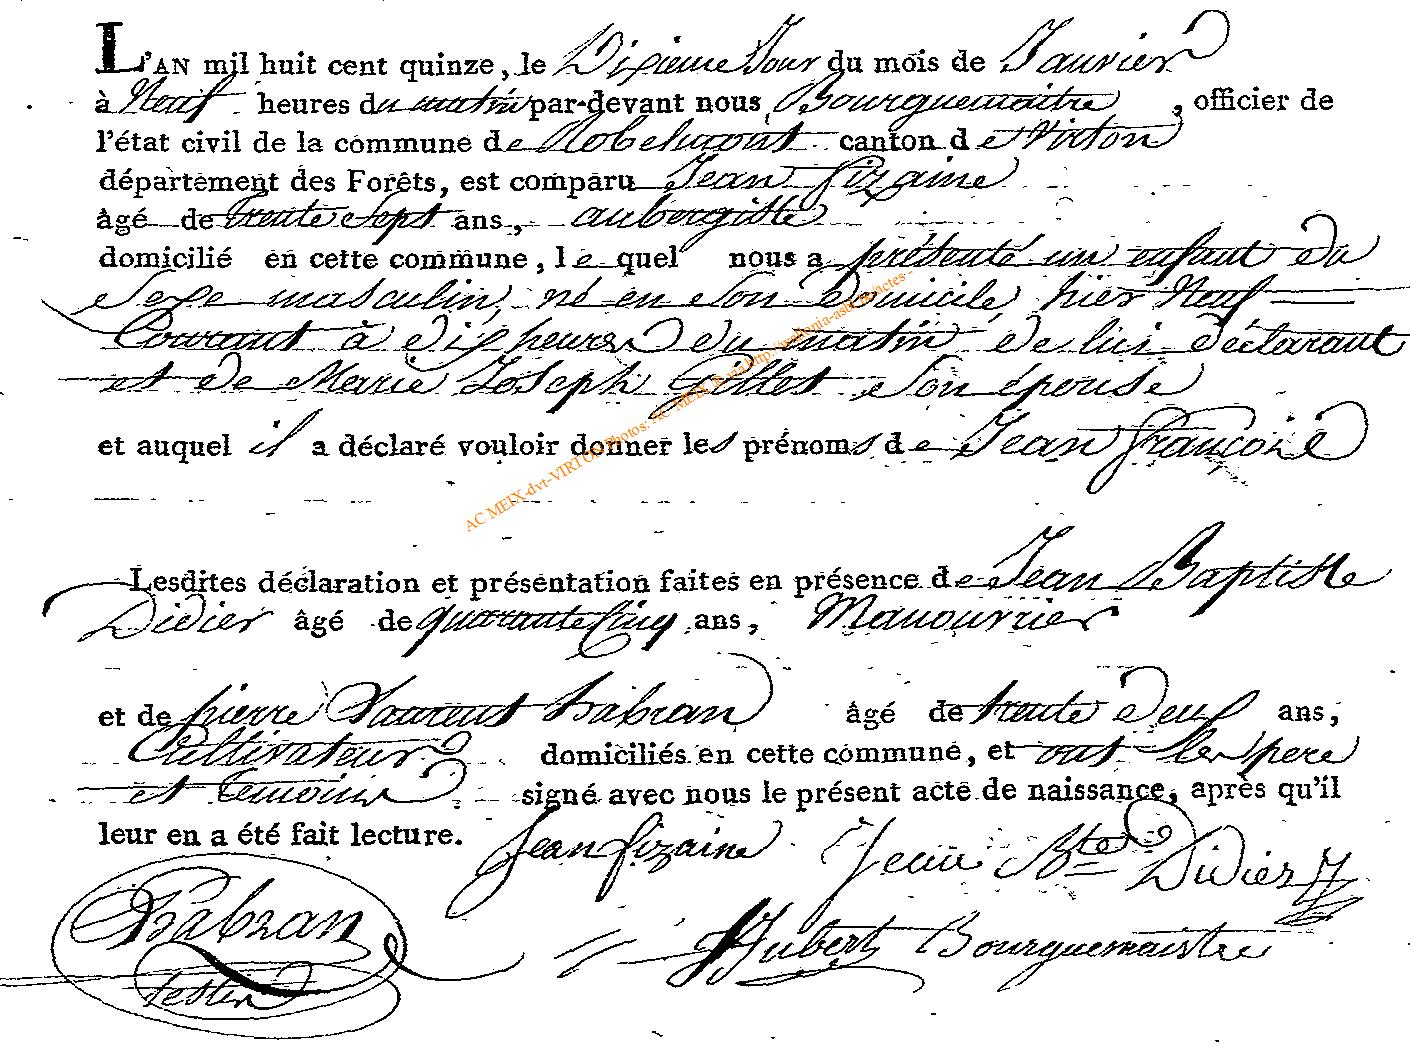 L'AN mil huit cent quinze, le Dixieme Jour du mois de Janvier
à Neuf heures du matin par-devant nous Bourguemaitre, officier de
l'état civil de la commune de Robelmont canton de Virton
département des Forêts, est comparu Jean fizaine
âgé de trente Sept ans, aubergiste
domicilié en cette commune, le quel nous a présenté un enfant du
Sexe masculin, né en Son Domicile, hier Neuf
Courant à dix heures du matin de lui déclarant
et de Marie Joseph Gillet Son épouse
et auquel il a déclaré vouloir donner les prénoms de Jean françois
AC MEIX-dvt-VIRTON Photos: AC MEIX
Lesdites déclaration et présentation faites en présence de Jean Baptiste
Didier âgé de quarante Cinq ans, Manouvrier
et de pierre Laurent habran âgé de trente deux ans,
Cultivateur domiciliés en cette commune, et ont les pere
et temoins signé avec nous le présent acte de naissance, après qu'il
leur en a été fait lecture. Jean fizaine Jean Bte Didier
habran Hubert Bourguemaistre